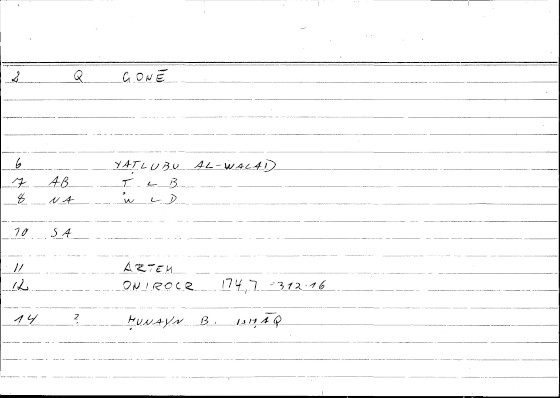 2 Q GONĒ
6 YAṬLUBU AL-WALAD
7 AB Ṭ L B
8 NA W L D
10 SA
11 ARTEM
12 ONIROCR 174,7 - 312.16
14 ? ḤUNAYN B. ISḤĀQ